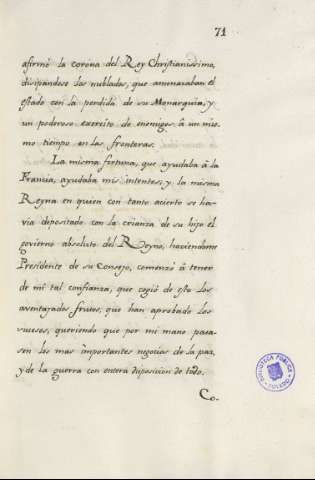 71
afirmó la corona del Rey Christianissimo,
disipandose los nublados, que amenazaban el
estado con la perdida de su Monarquia, y
un poderoso exercito de enemigos à un mis-
mo tiempo en las fronteras.
La misma fortuna, que ayudaba à la
Francia, ayudaba mis intentos; y la misma
Reyna en quien con tanto acierto se ha-
via depositado con la crianza de su hijo el
govierno absoluto del Reyno, haciendome
Presidente de su Consejo, comenzó à tener
de mi tal confianza, que cogió de esto los
aventajados frutos, que han aprobado los
sucesos, queriendo que por mi mano pasa-
sen los mas importantes negocios de la paz,
y de la guerra con entera disposicion de todo.
Co-
BIBLIOTECA PUBLICA
TOLEDO